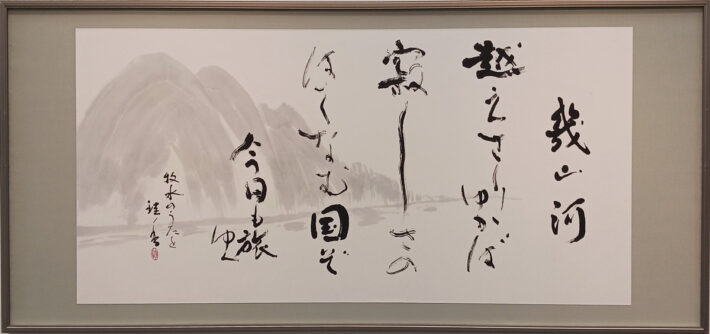 幾山河
越えさりゆかば
寂しさの
はてなむ国ぞ
今日も旅
ゆく
牧水のうたを